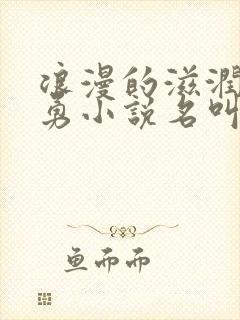 浪漫的滋润
勇小说名叫
鱼而而